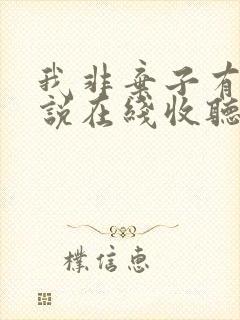 我非弃子有
說在綫收聽
樸信惠